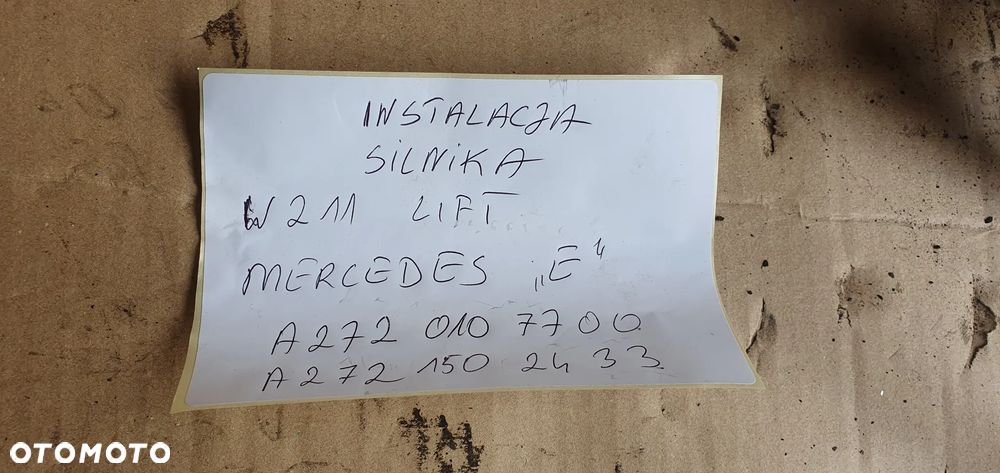 INSTALACJA
SILNIKA
W211 LIFT
MERCEDES „E"
A272 010 7700
A272 150 2433
OTOMOTO